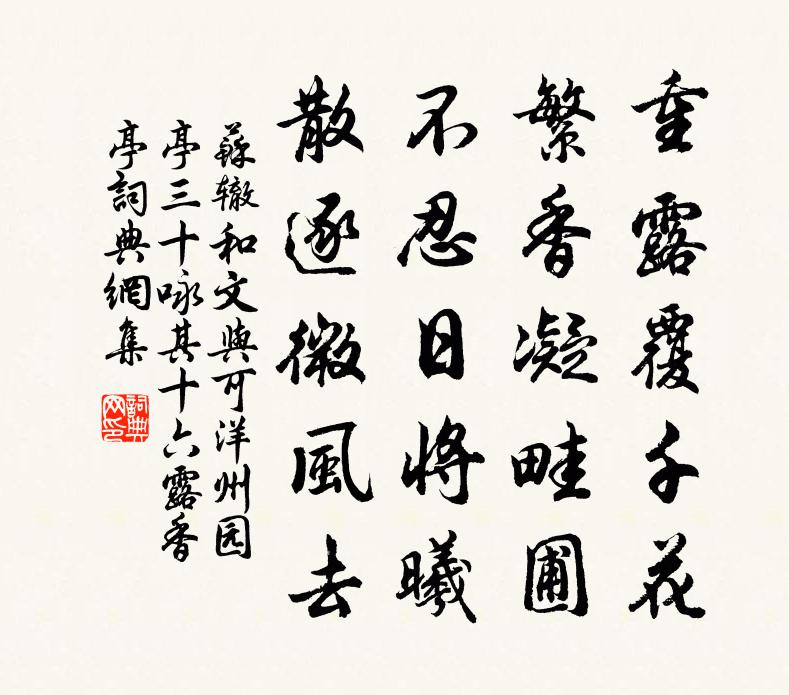 重露覆千花
繁香凝畦圃
不忍日將曦
散逐微風去
蘇辙和文與可洋州园
亭三十咏其十六露香
亭詞典網集
詞典
网印